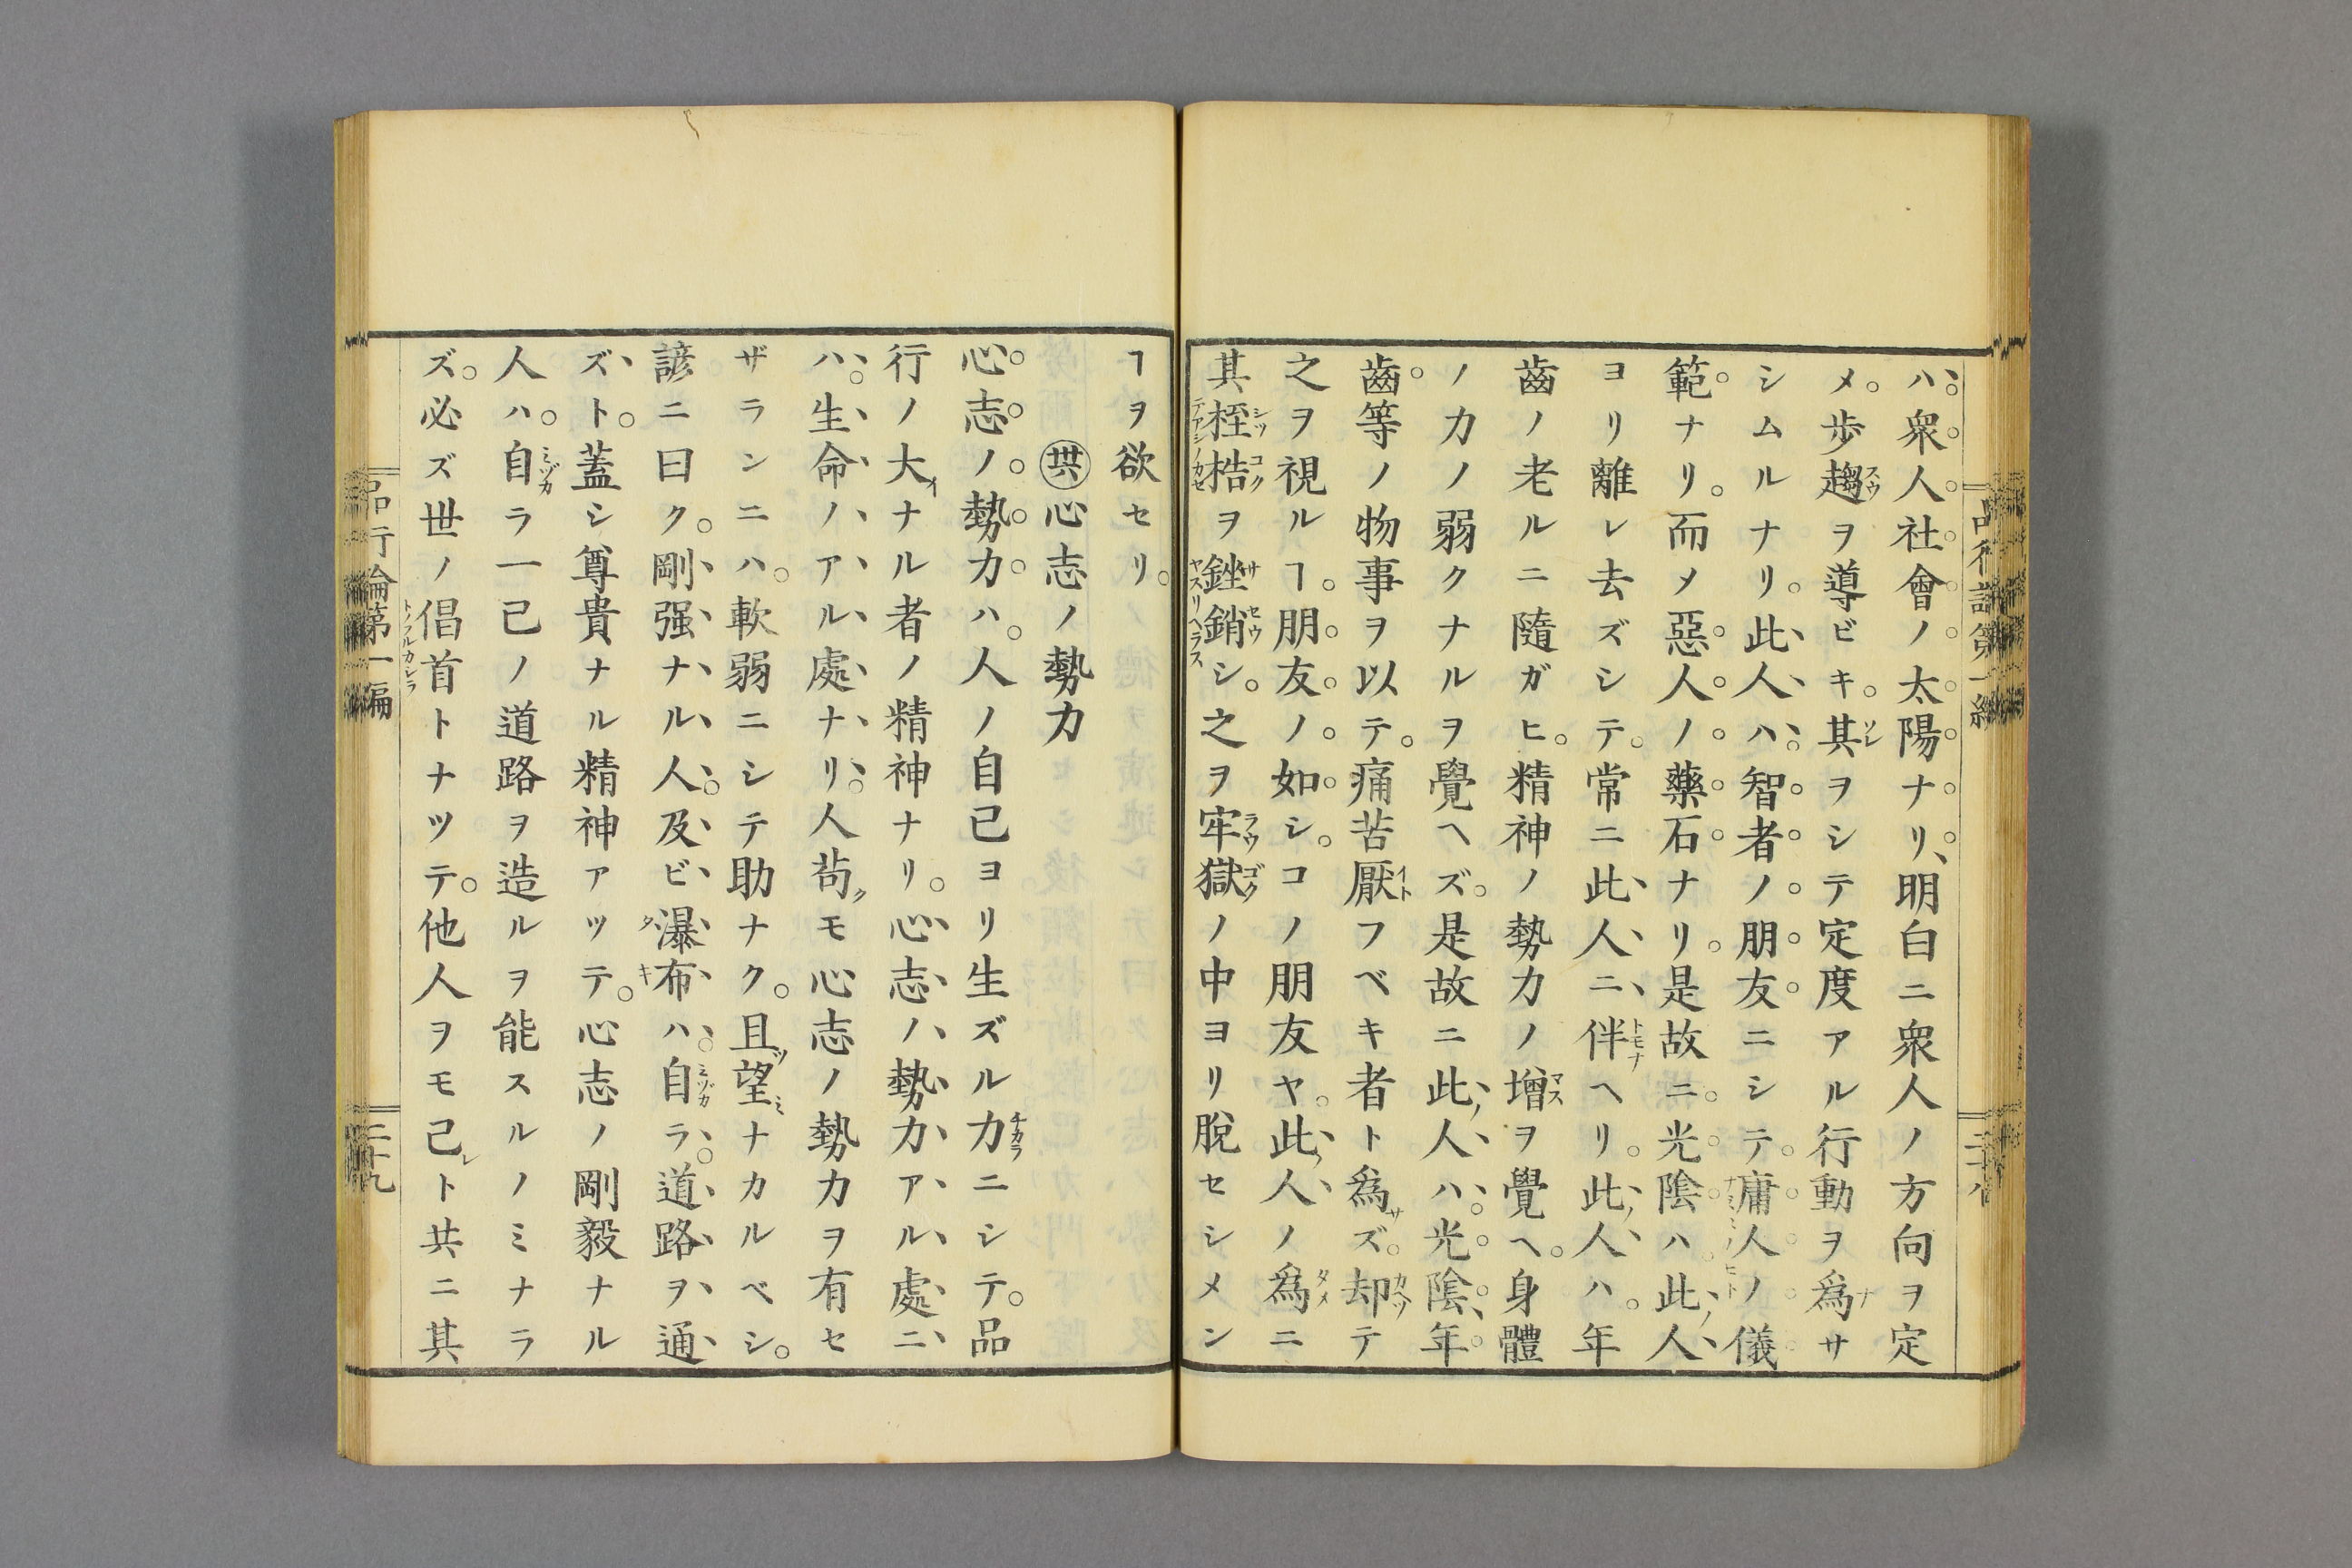 ハ。衆人社會ノ太陽ナリ。明白ニ衆人ノ方向ヲ定
メ。歩趨ヲ導ビキ。其ヲシテ定度アル行動ヲ爲サ
シムルナリ。此人ハ。智者ノ朋友ニシテ。庸人ノ儀
範ナリ。而メ惡人ノ藥石ナリ。是故ニ。光陰ハ此人
ヨリ離レ去ズシテ。常ニ此人ニ伴ヘリ。此人ハ。年
齒ノ老ルニ隨ガヒ。精神ノ勢力ノ增ヲ覺ヘ。身體
ノ力ノ弱クナルヲ覺ヘズ。是故ニ此人ハ。光陰。年
齒等ノ物事ヲ以テ。痛苦厭フベキ者ト爲ズ。却テ
之ヲ視ルヿ。朋友ノ如シ。コノ朋友ヤ。此人ノ爲ニ
其桎梏ヲ銼銷シ。之ヲ牢獄ノ中ヨリ脫セシメン
ヿヲ欲セリ。
心志ノ勢力
心志ノ勢力ハ。人ノ自己ヨリ生ズル力ニシテ。品
行ノ大ナル者ノ精神ナリ。心志ノ勢力アル處ニ
ハ。生命ノアル處ナリ。人苟モ心志ノ勢力ヲ有セ
ザランニハ。軟弱ニシテ助ナク。且望ナカルベシ。
諺ニ曰ク。剛强ナル人。及ビ瀑布ハ。自ラ。道路ヲ通
ズト。蓋シ尊貴ナル精神アツテ。心志ノ剛毅ナル
人ハ。自ラ一己ノ道路ヲ造ルヲ能スルノミナラ
ズ。必ズ世ノ倡首トナツテ。他人ヲモ己ト共ニ其
品行論第一編
二十九